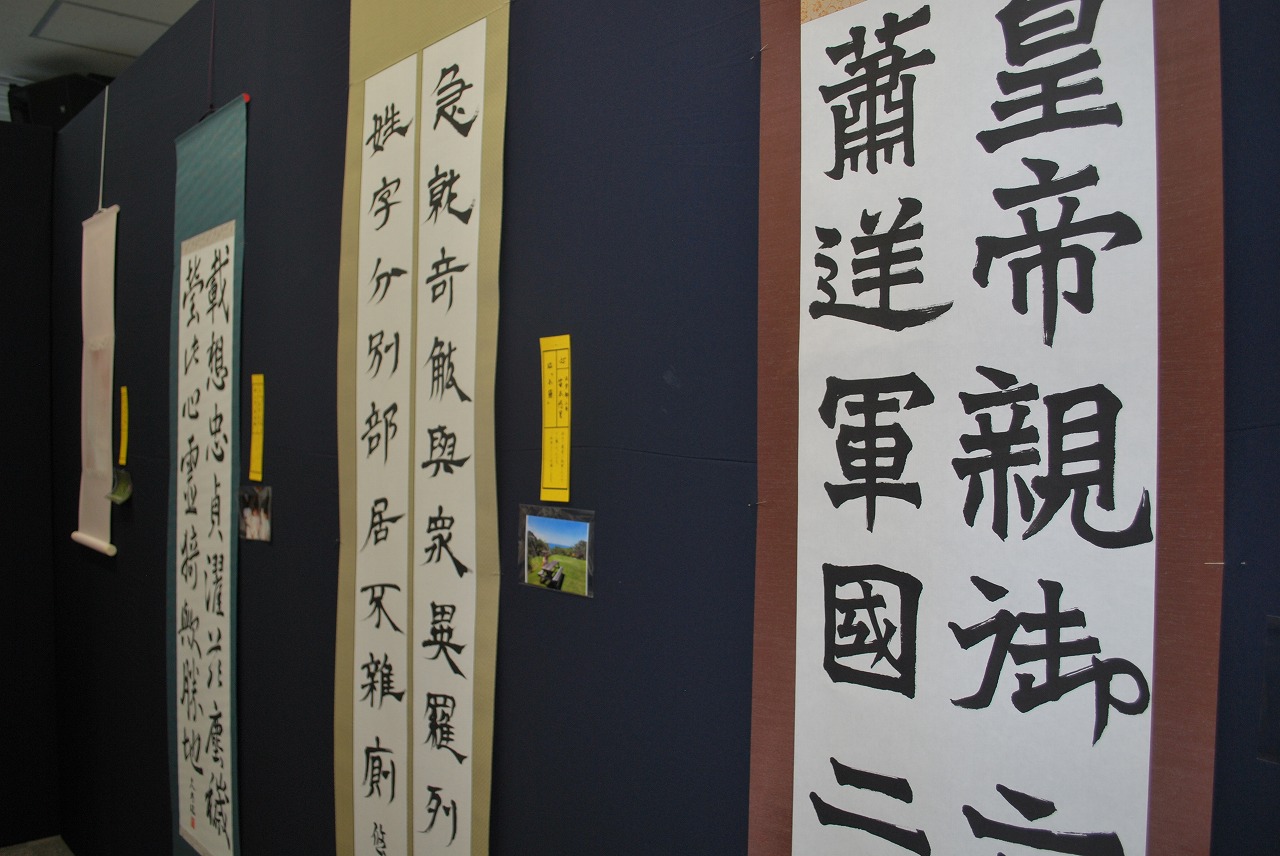 皇帝親御六
蕭逆軍國二
急就奇觚與衆異羅列
姓字分別部居不雜廁
載想忠貞濯茲塵穢
瑩此心靈猗歟勝地